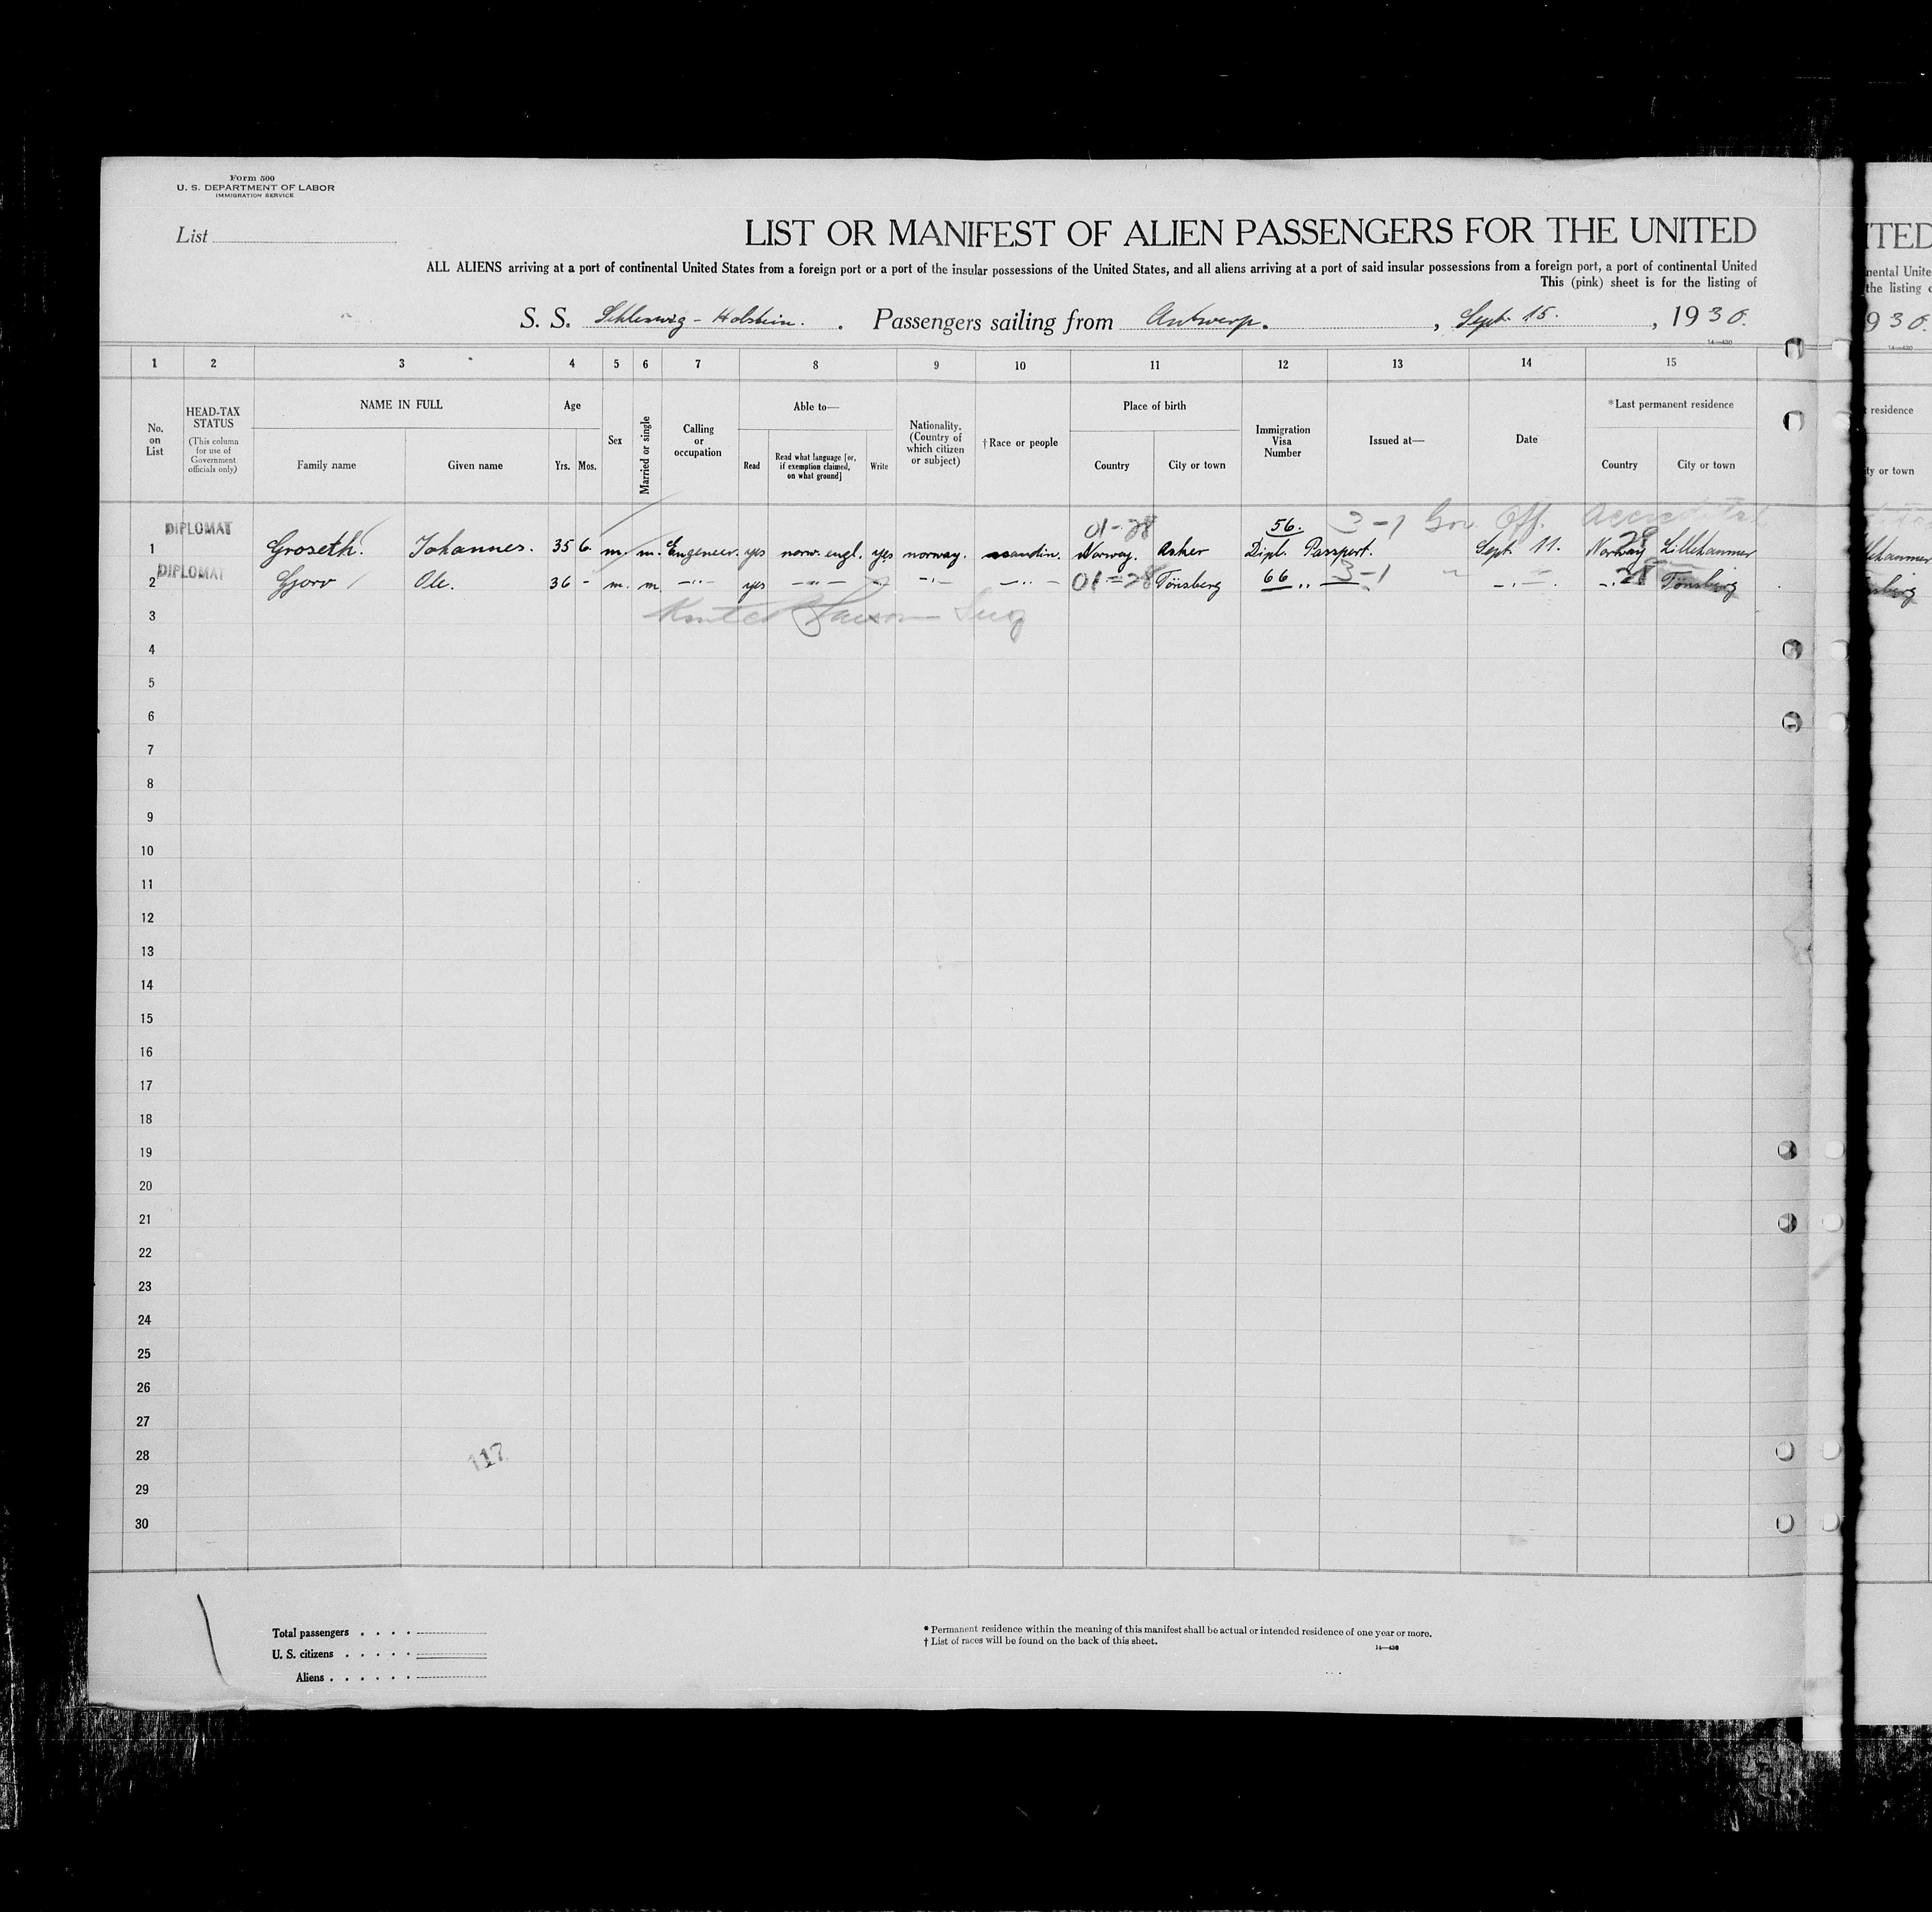 Form 500
U. S. DEPARTMENT OF LABOR
IMMIGRATION SERVICE
List
LIST OR MANIFEST OF ALIEN PASSENGERS FOR THE UNITED
ALL ALIENS arriving at a port of continental United States from a foreign port or a port of the insular possessions of the United States, and all aliens arriving at a port of said insular possessions from a foreign port, a port of continental United
This (pink) sheet is for the listing of
S. S. Schleswig-Holstein. Passengers sailing from Antwerp. , Sept. 15. , 1930.
14—430
1 2 3 4 5 6 7 8 9 10 11 12 13 14 15
No. on List
HEAD-TAX STATUS (This column for use of Government officials only)
NAME IN FULL
Family name Given name
Age
Yrs. Mos.
Sex
Married or single
Calling or occupation
Able to—
Read Read what language [or, if exemption claimed, on what ground] Write
Nationality. (Country of which citizen or subject)
†Race or people
Place of birth
Country City or town
Immigration Visa Number
Issued at—
Date
*Last permanent residence
Country City or town
01-28 56. 3-1 Gov. Off.
DIPLOMAT
1 Groseth. Johannes. 35 6. m. m. Engeneer. yes norw. engl. yes norway. Norway. Asker Dipl. Passport. Sept. 11. Norway Lillehammer
DIPLOMAT
2 Gjorv Ole. 36 - m. m. -"- yes -"- -"- -"- 01=28 Tönsberg 66 " 3-1 -"- -"- 28 Tönsberg
3
4
5
6
7
8
9
10
11
12
13
14
15
16
17
18
19
20
21
22
23
24
25
26
27
28
29
30
117
Total passengers
U. S. citizens
Aliens
* Permanent residence within the meaning of this manifest shall be actual or intended residence of one year or more.
† List of races will be found on the back of this sheet.
14—430
ITED
nental Unite
the listing o
9 30.
14—430
residence
ity or town